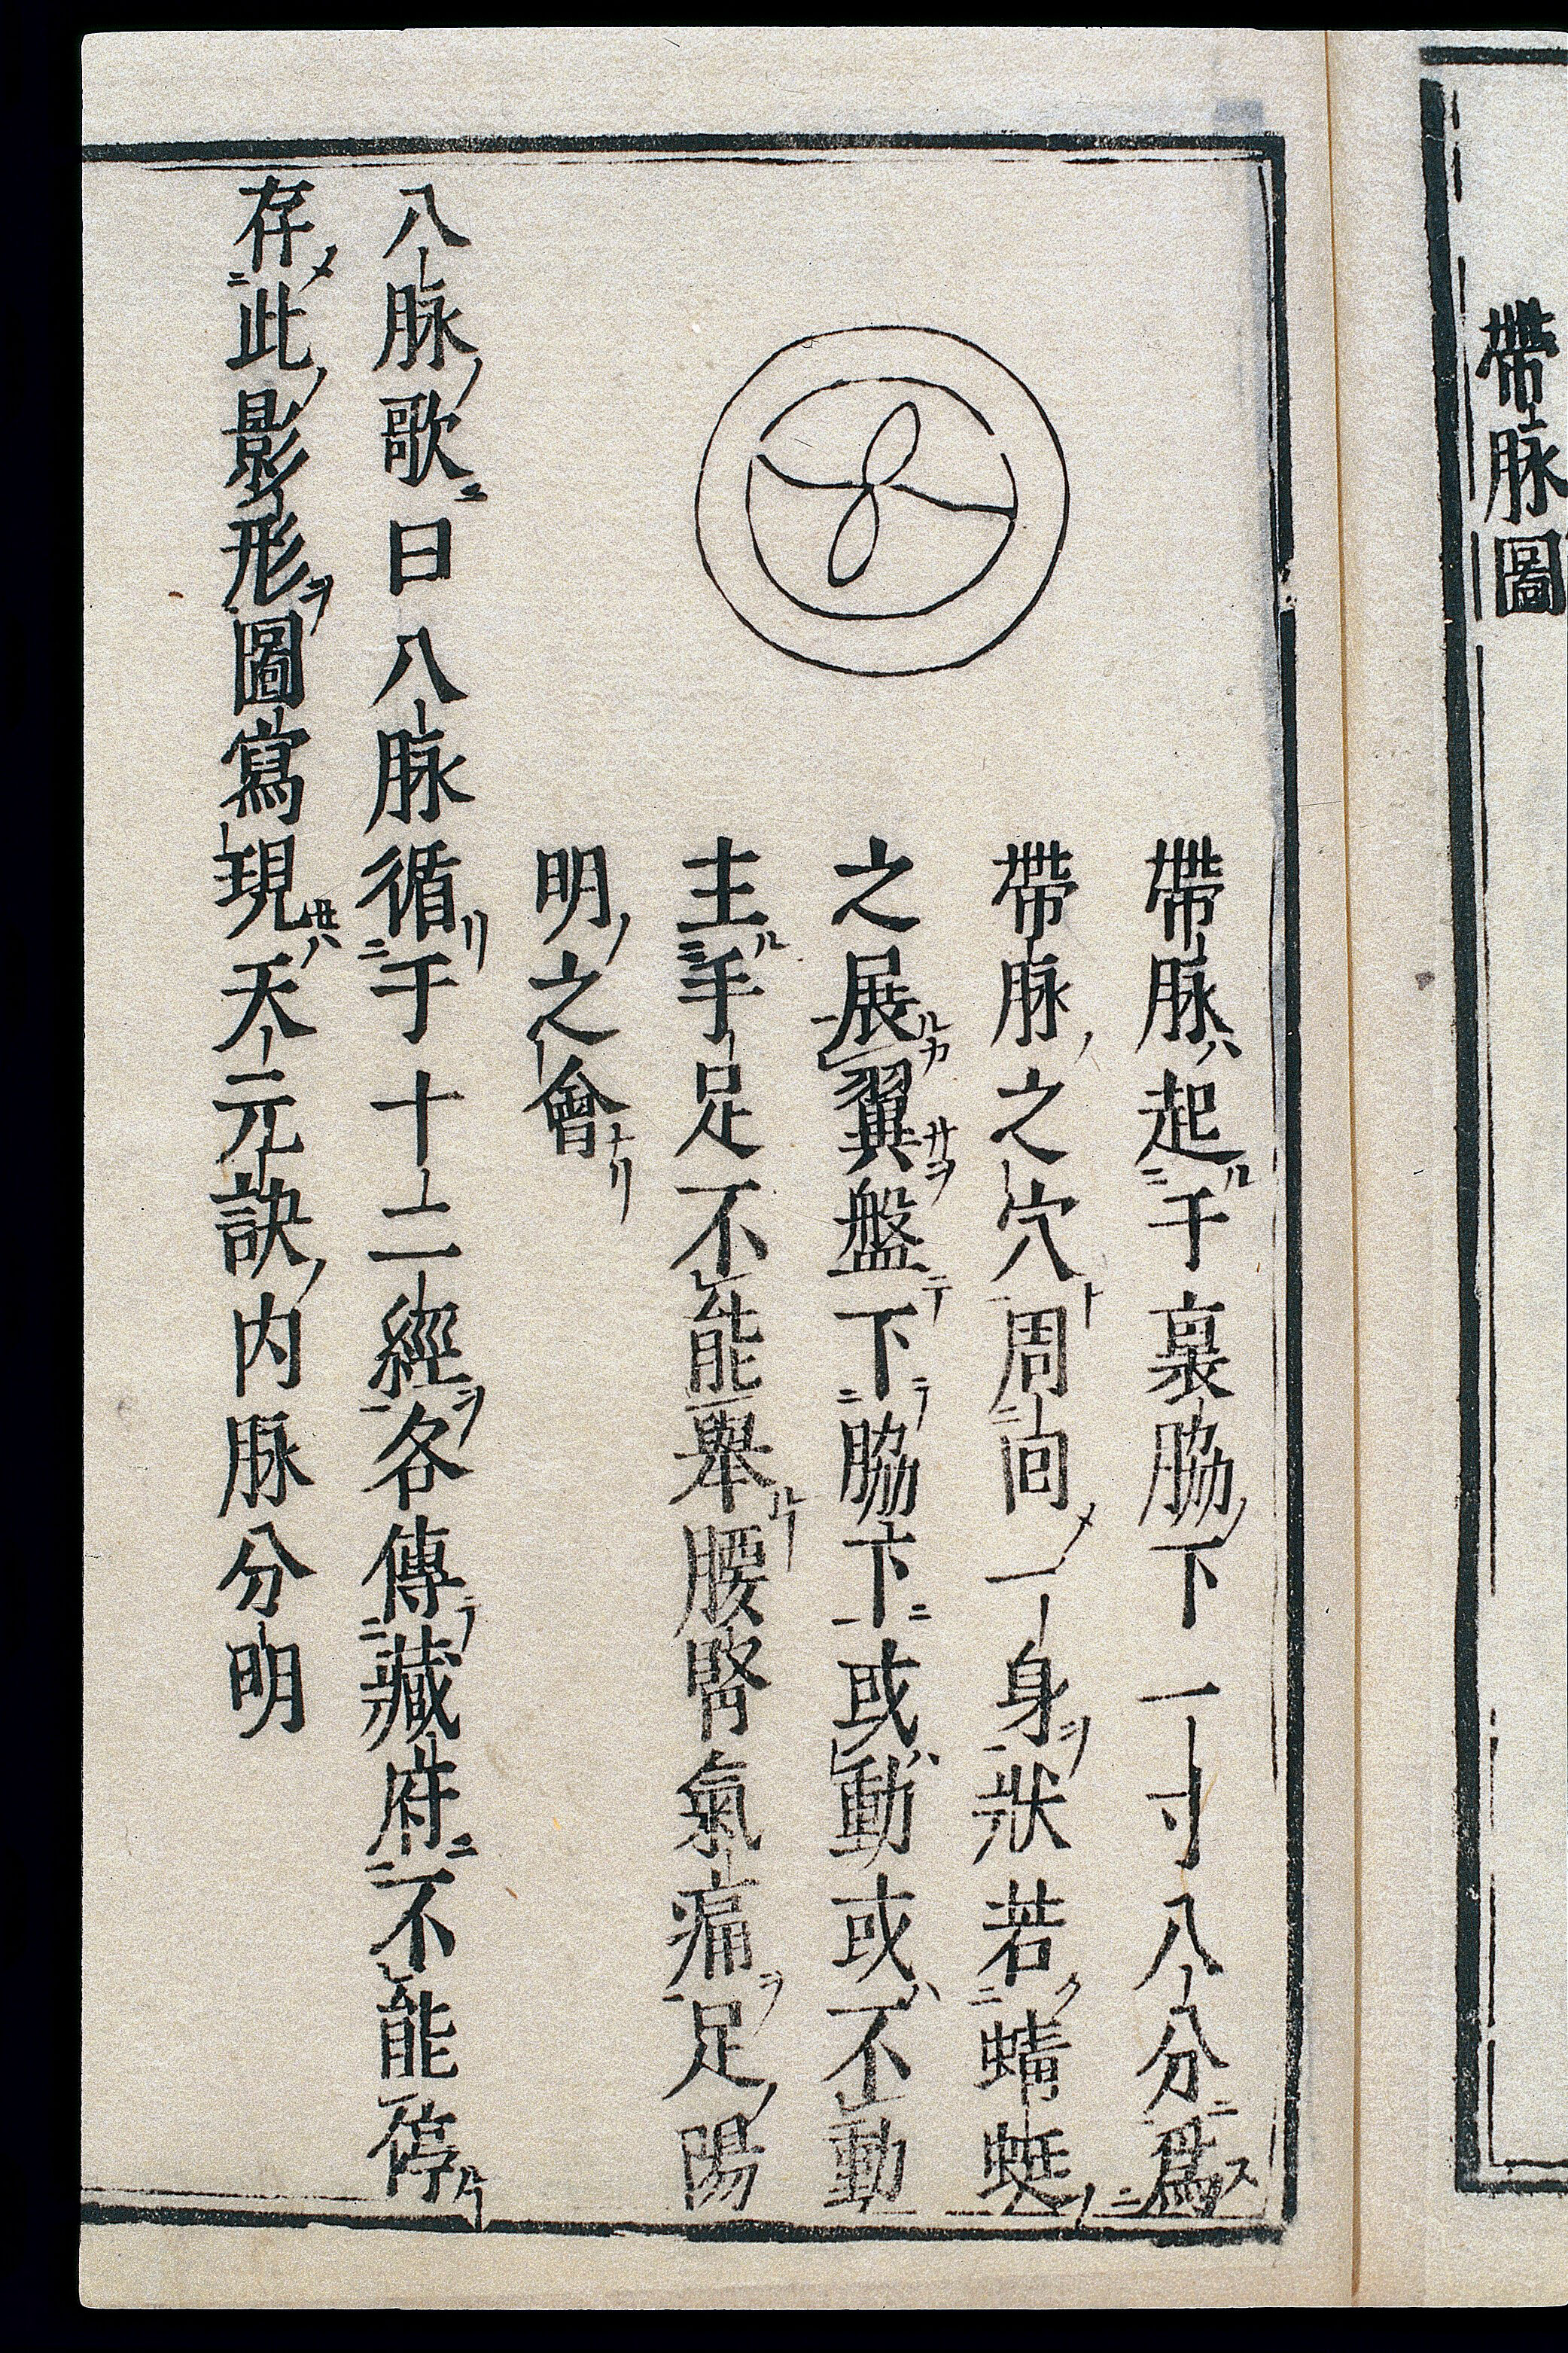 帶脉圖
帶脉起于裏脇下一寸八分爲
帶脉之穴周回一身狀若蜻蜓
之展翼盤下脇下或動或不動
主手足不能舉腰腎氣痛足陽
明之會
八脉歌曰八脉循于十二經各傳藏府不能停
存此影形圖寫現天元訣内脉分明